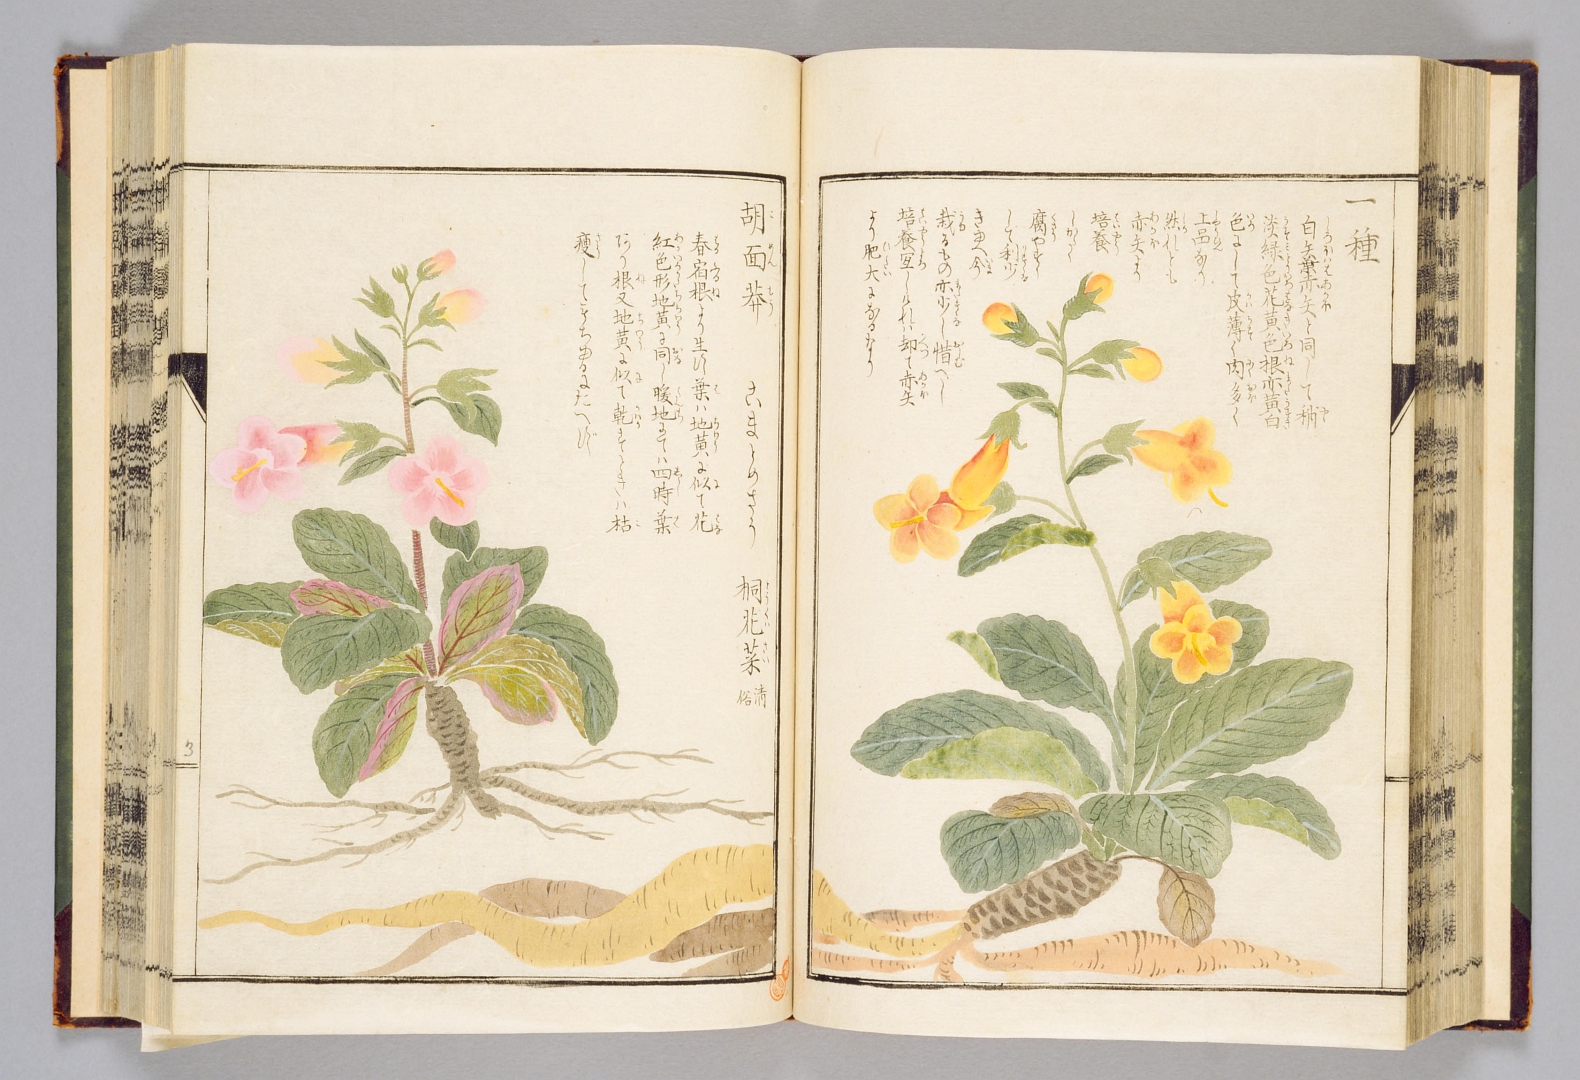 一種
白矢葉亦矢と同して梢
淡緑色花黄色根亦黄白
色にして皮薄く肉多く
上品なり
然れとも
赤矢より
培養
しかたく
腐やすく
して利少
きゆへ今
栽るもの亦少し惜へし
培養宜しけれハ却て赤矢
より肥大になるなり
胡面莽 こまのめさう 桐花菜 清俗
春宿根より生ひ葉ハ地黄に似て花
紅色形地黄に同し暖地にてハ四時葉
あり根又地黄に似て乾すときハ枯
痩して
3